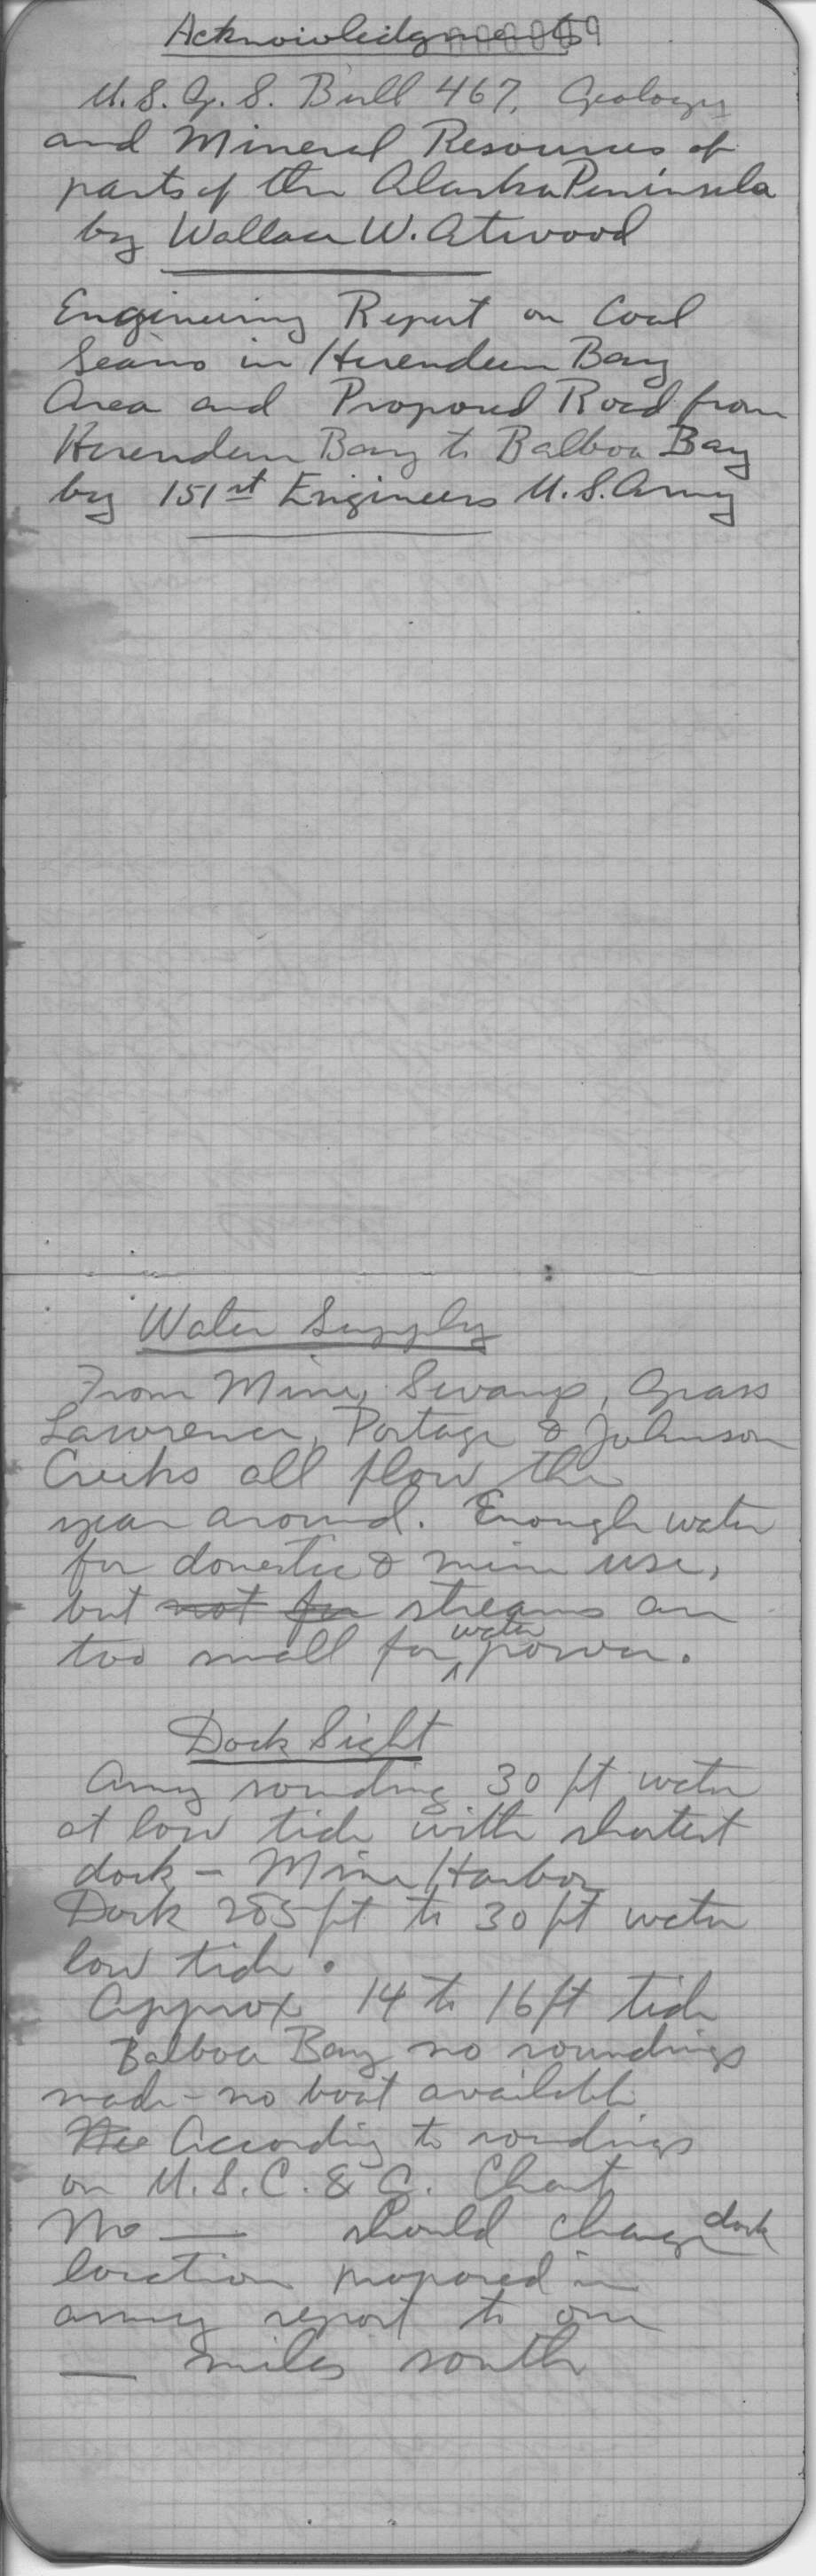 Acknowledgments
U.S.G.S. Bull 467, Geology
and Mineral Resources of
parts of the Alaska Peninsula
by Wallace W. Atwood
Engineering Report on Coal
Seams in Herendeen Bay
Area and Proposed Road from
Herendeen Bay to Balboa Bay
by 151st Engineers U.S. Army
Water Supply
From Mine, Swamp, Grass
Lawrence, Portage & Johnson
Creeks all flow the
year around. Enough water
for domestic & mine use,
but not for streams are
too small for water power.
Dock Sight
Army sounding 30 ft water
at low tide with shortest
dock - Mine Harbor
Dock 285 ft to 30 ft water
low tide.
Approx 14 to 16 ft tide
Balboa Bay no soundings
made - no boat available
According to soundings
on U.S.C. & G. Chart
No — should change dock
location proposed in
army report to one
— miles south